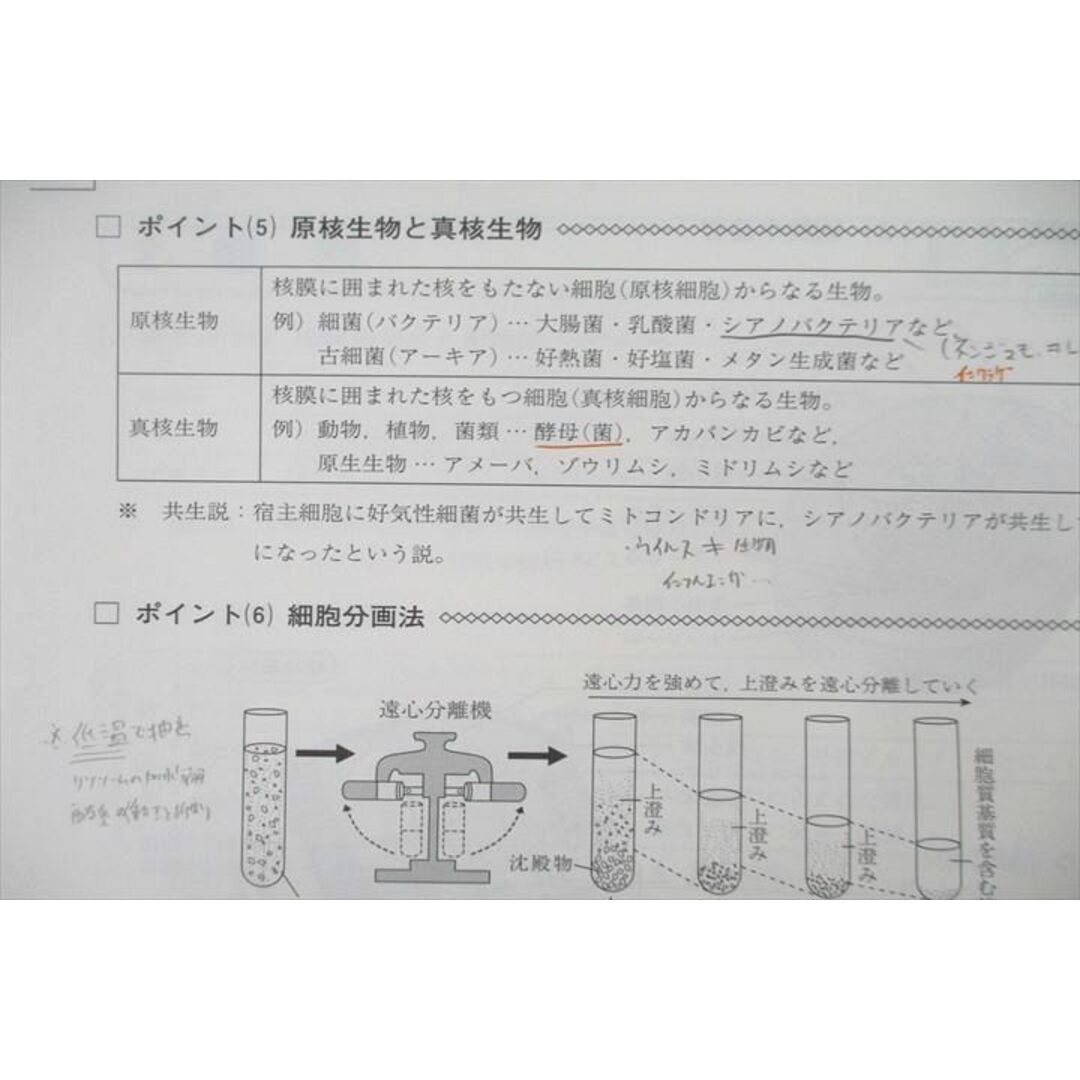 ポイント(5) 原核生物と真核生物
原核生物
核膜に囲まれた核をもたない細胞(原核細胞)からなる生物。
例) 細菌(バクテリア)…大腸菌・乳酸菌・シアノバクテリアなど
古細菌(アーキア)…好熱菌・好塩菌・メタン生成菌など
真核生物
核膜に囲まれた核をもつ細胞(真核細胞)からなる生物。
例) 動物，植物，菌類…酵母(菌)，アカパンカビなど，
原生生物…アメーバ，ゾウリムシ，ミドリムシなど
※ 共生説：宿主細胞に好気性細菌が共生してミトコンドリアに，シアノバクテリアが共生し
になったという説。
・ウイルス キ 生物
ポイント(6) 細胞分画法
遠心力を強めて，上澄みを遠心分離していく
遠心分離機
※低温で
上澄み
上澄み
上澄み
沈殿物
細胞質基質を含む